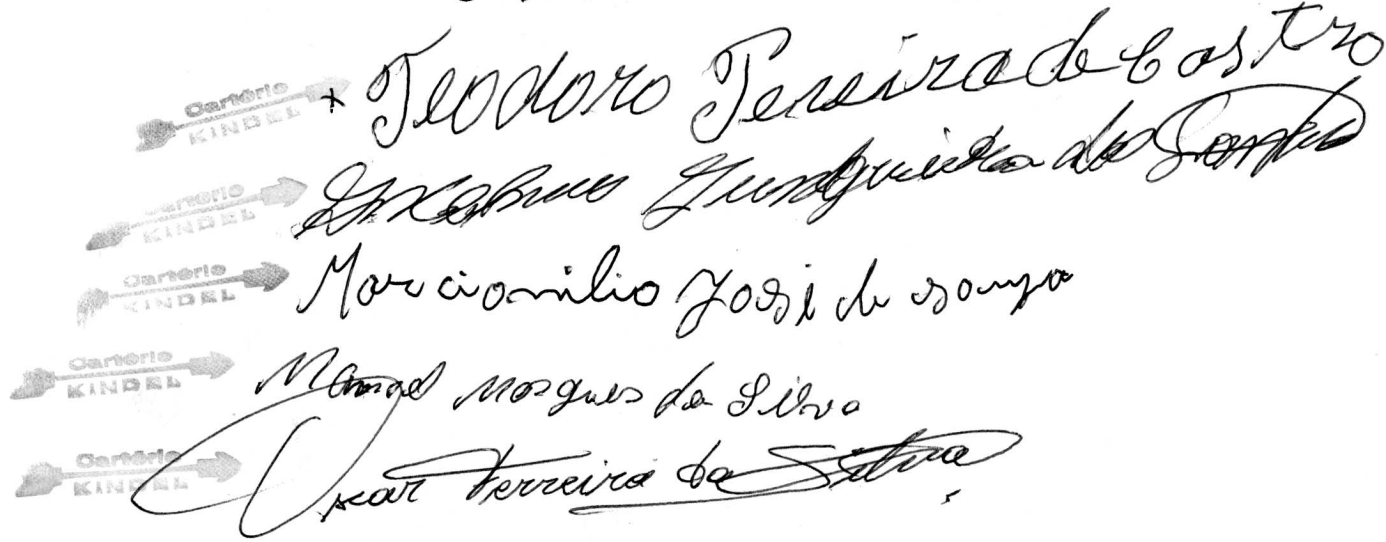 Cartório
KINDEL
+ Teodoro Pereira de Castro
Cartório
KINDEL
Junqueira dos Santos
Cartório
KINDEL
Marcionilio José de Souza
Cartório
KINDEL
Manoel Marques da Silva
Cartório
KINDEL
Oscar Ferreira da Silva